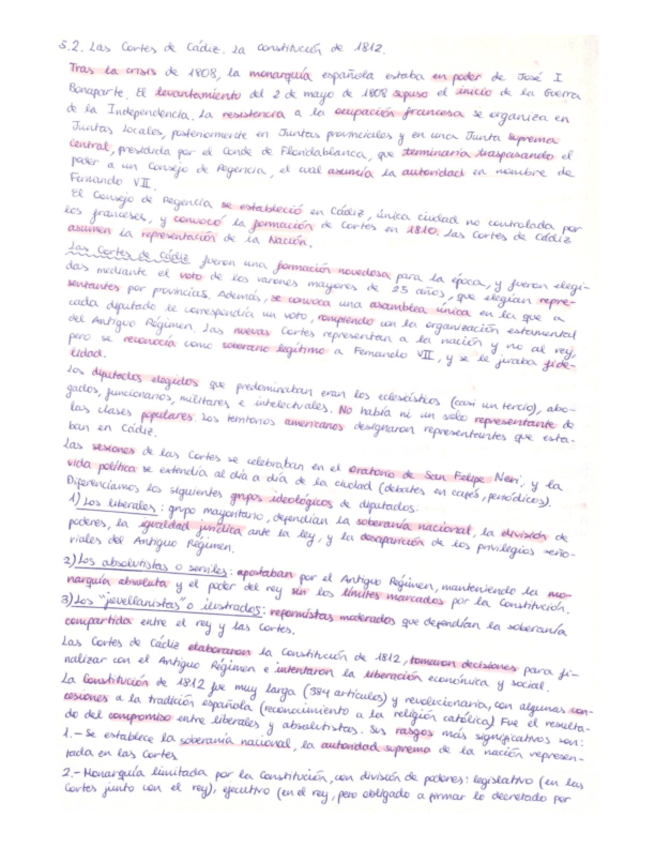 5.2. Las Cortes de Cádiz. La constitución de 1812.
Tras la crisis de 1808, la monarquía española estaba en poder de José I
Bonaparte. El levantamiento del 2 de mayo de 1808 supuso el inicio de la Guerra
de la Independencia. La resistencia a la ocupación francesa se organiza en
Juntas locales, posteriormente en Juntas provinciales y en una Junta suprema
Central, presidida por el Conde de Floridablanca, que terminaría traspasando el
poder a un Consejo de Regencia, el cual asumía la autoridad en nombre de
Fernando VII.
El Consejo de Regencia se estableció en Cádiz, única ciudad no controlada por
los franceses, y convocó la formación de Cortes en 1810. Las Cortes de Cádiz
asumen la representación de la Nación.
Las Cortes de Cádiz fueron una formación novedosa para la época, y fueron elegi-
das mediante el voto de los varones mayores de 25 años, que elegían repre-
sentantes por provincias. Además, se convoca una asamblea única en la que a
cada diputado le correspondía un voto, rompiendo con la organización estamental
del Antiguo Régimen. Las nuevas Cortes representan a la nación y no al rey,
pero se reconocía como soberano legítimo a Fernando VII, y se le juraba fide-
lidad.
Los diputados elegidos que predominaban eran los eclesiásticos (casi un tercio), abo-
gados, funcionarios, militares e intelectuales. No había ni un solo representante de
las clases populares. Los territorios americanos designaron representantes que esta-
ban en Cádiz.
Las sesiones de las Cortes se celebraban en el oratorio de San Felipe Neri, y la
vida política se extendía al día a día de la ciudad (debates en cafés, periódicos).
Diferenciamos los siguientes grupos ideológicos de diputados:
1) Los liberales: grupo mayoritario, defendían la soberanía nacional, la división de
poderes, la igualdad jurídica ante la ley, y la desaparición de los privilegios seño-
riales del Antiguo Régimen.
2) Los absolutistas o serviles: apostaban por el Antiguo Régimen, manteniendo la mo-
narquía absoluta y el poder del rey sin los límites marcados por la Constitución.
3) Los "jovellanistas" o ilustrados: reformistas moderados que defendían la soberanía
compartida entre el rey y las Cortes.
Las Cortes de Cádiz elaboraron la Constitución de 1812, tomaron decisiones para fi-
nalizar con el Antiguo Régimen e intentaron la liberación económica y social.
La Constitución de 1812 fue muy larga (384 artículos) y revolucionaria, con algunas con-
cesiones a la tradición española (reconocimiento a la religión católica) Fue el resulta-
do del compromiso entre liberales y absolutistas. Sus rasgos más significativos son:
1.- Se establece la soberanía nacional, la autoridad suprema de la nación represen-
tada en las Cortes
2.- Monarquía limitada por la Constitución, con división de poderes: legislativo (en las
Cortes junto con el rey), ejecutivo (en el rey, pero obligado a firmar lo decretado por